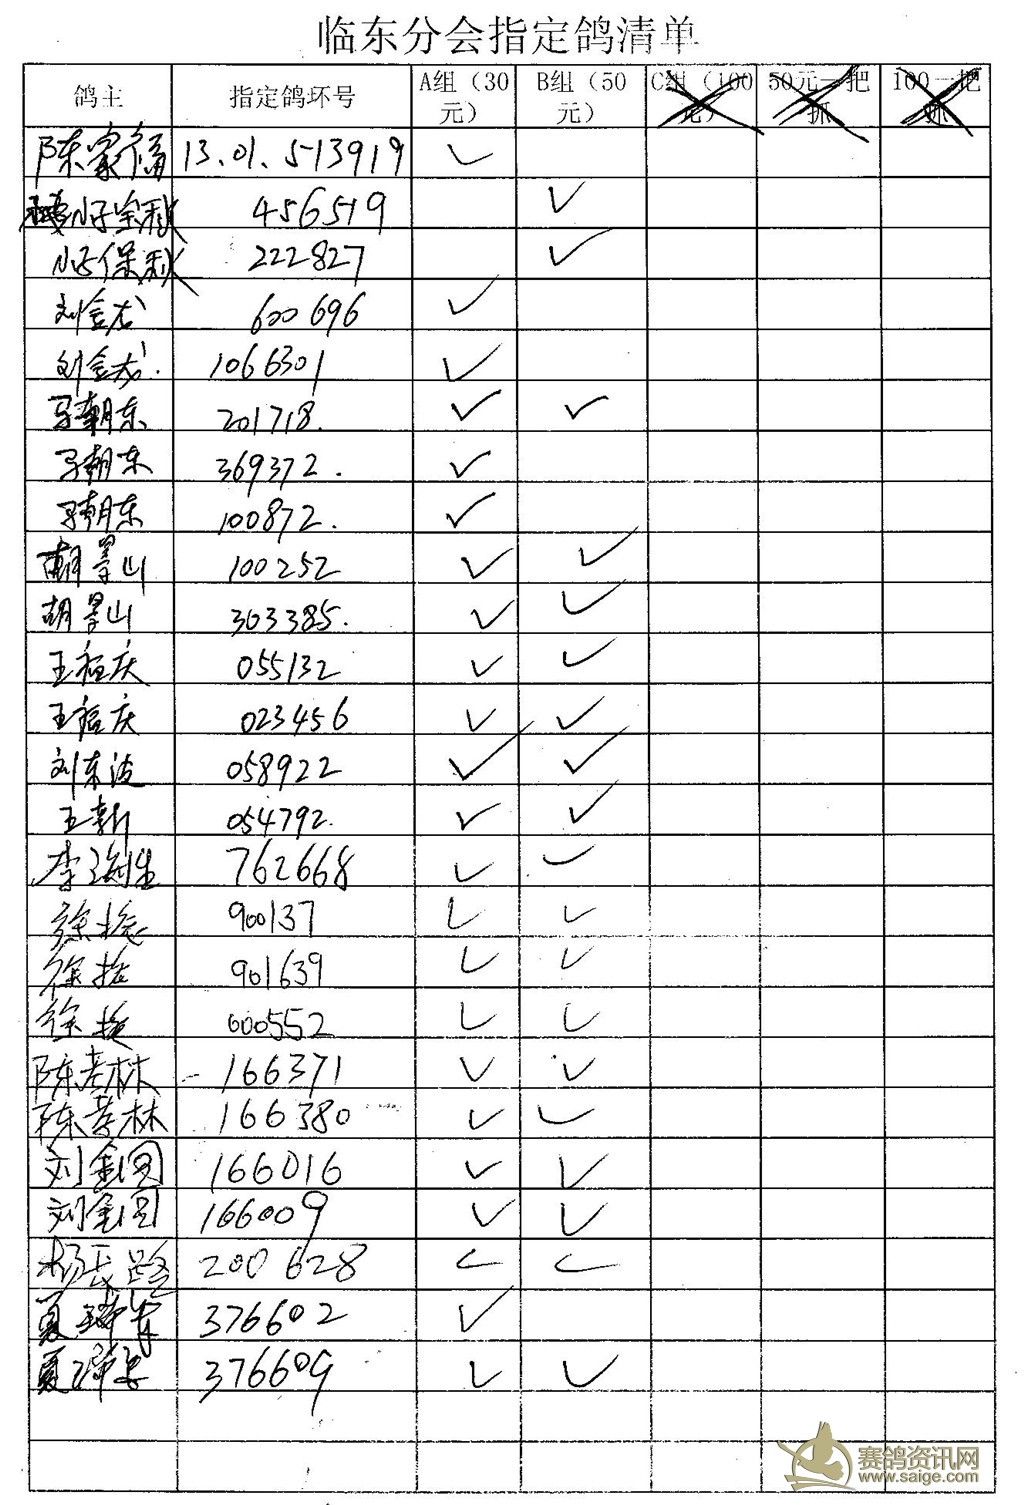 临东分会指定鸽清单
鸽主 指定鸽环号 A组（30元） B组（50元） C组（100元） 50元一把抓 100一把抓
陈家福 13.01.513919 ✓
456519 ✓
保秋 222827 ✓
刘金龙 600696 ✓
刘金龙. 1066301 ✓
马朝东 201718. ✓ ✓
马朝东 369372. ✓
马朝东 100872. ✓
胡景山 100252 ✓ ✓
胡景山 303385. ✓ ✓
王福庆 055132 ✓ ✓
王福庆 023456 ✓ ✓
刘东波 058922 ✓ ✓
王新 054792. ✓ ✓
李 生 762668 ✓ ✓
徐 900137 ✓ ✓
徐 901639 ✓ ✓
徐 000552 ✓ ✓
陈若林 166371 ✓ ✓
陈若林 166380 ✓ ✓
刘金国 166016 ✓ ✓
刘金国 166009 ✓ ✓
杨 路 200628 ✓ ✓
夏 376602 ✓
夏 376609 ✓ ✓
赛鸽资讯网
www.saige.com